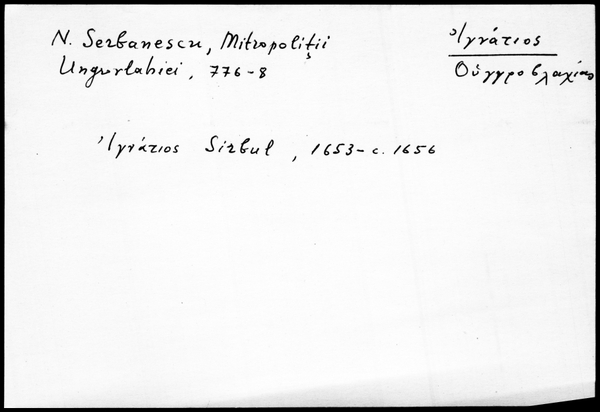 N. Serbanescu, Mitropoliții
Ungrovlahiei, 776-8
Ἰγνάτιος
Οὐγγροβλαχίας
Ἰγνάτιος Sirbul, 1653-c. 1656